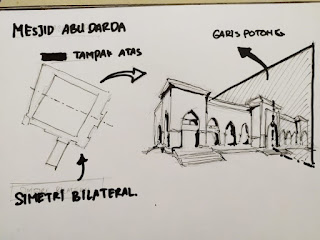 MESJID ABU DARDA
TAMPAK ATAS
GARIS POTONG
SIMETRI BILATERAL.